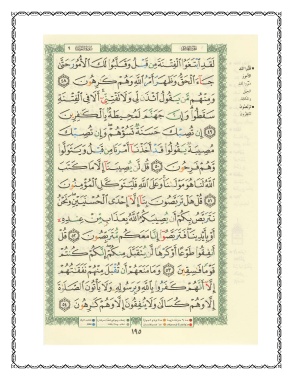 لَقَدِ ابْتَغَوُا الْفِتْنَةَ مِن قَبْلُ وَقَلَّبُوا لَكَ الْأُمُورَ حَتَّىٰ
جَاءَ الْحَقُّ وَظَهَرَ أَمْرُ اللَّهِ وَهُمْ كَارِهُونَ ٤٨
وَمِنْهُم مَّن يَقُولُ ائْذَن لِّي وَلَا تَفْتِنِّي أَلَا فِي الْفِتْنَةِ
سَقَطُوا وَإِنَّ جَهَنَّمَ لَمُحِيطَةٌ بِالْكَافِرِينَ ٤٩
إِن تُصِبْكَ حَسَنَةٌ تَسُؤْهُمْ وَإِن تُصِبْكَ
مُصِيبَةٌ يَقُولُوا قَدْ أَخَذْنَا أَمْرَنَا مِن قَبْلُ وَيَتَوَلَّوا
وَّهُمْ فَرِحُونَ ٥٠ قُل لَّن يُصِيبَنَا إِلَّا مَا كَتَبَ
اللَّهُ لَنَا هُوَ مَوْلَانَا وَعَلَى اللَّهِ فَلْيَتَوَكَّلِ الْمُؤْمِنُونَ
٥١ قُلْ هَلْ تَرَبَّصُونَ بِنَا إِلَّا إِحْدَى الْحُسْنَيَيْنِ وَنَحْنُ
نَتَرَبَّصُ بِكُمْ أَن يُصِيبَكُمُ اللَّهُ بِعَذَابٍ مِّنْ عِندِهِ
أَوْ بِأَيْدِينَا فَتَرَبَّصُوا إِنَّا مَعَكُم مُّتَرَبِّصُونَ ٥٢ قُلْ
أَنفِقُوا طَوْعًا أَوْ كَرْهًا لَّن يُتَقَبَّلَ مِنكُمْ إِنَّكُمْ كُنتُمْ
قَوْمًا فَاسِقِينَ ٥٣ وَمَا مَنَعَهُمْ أَن تُقْبَلَ مِنْهُمْ نَفَقَاتُهُمْ
إِلَّا أَنَّهُمْ كَفَرُوا بِاللَّهِ وَبِرَسُولِهِ وَلَا يَأْتُونَ الصَّلَاةَ
إِلَّا وَهُمْ كُسَالَىٰ وَلَا يُنفِقُونَ إِلَّا وَهُمْ كَارِهُونَ ٥٤
١٩٥